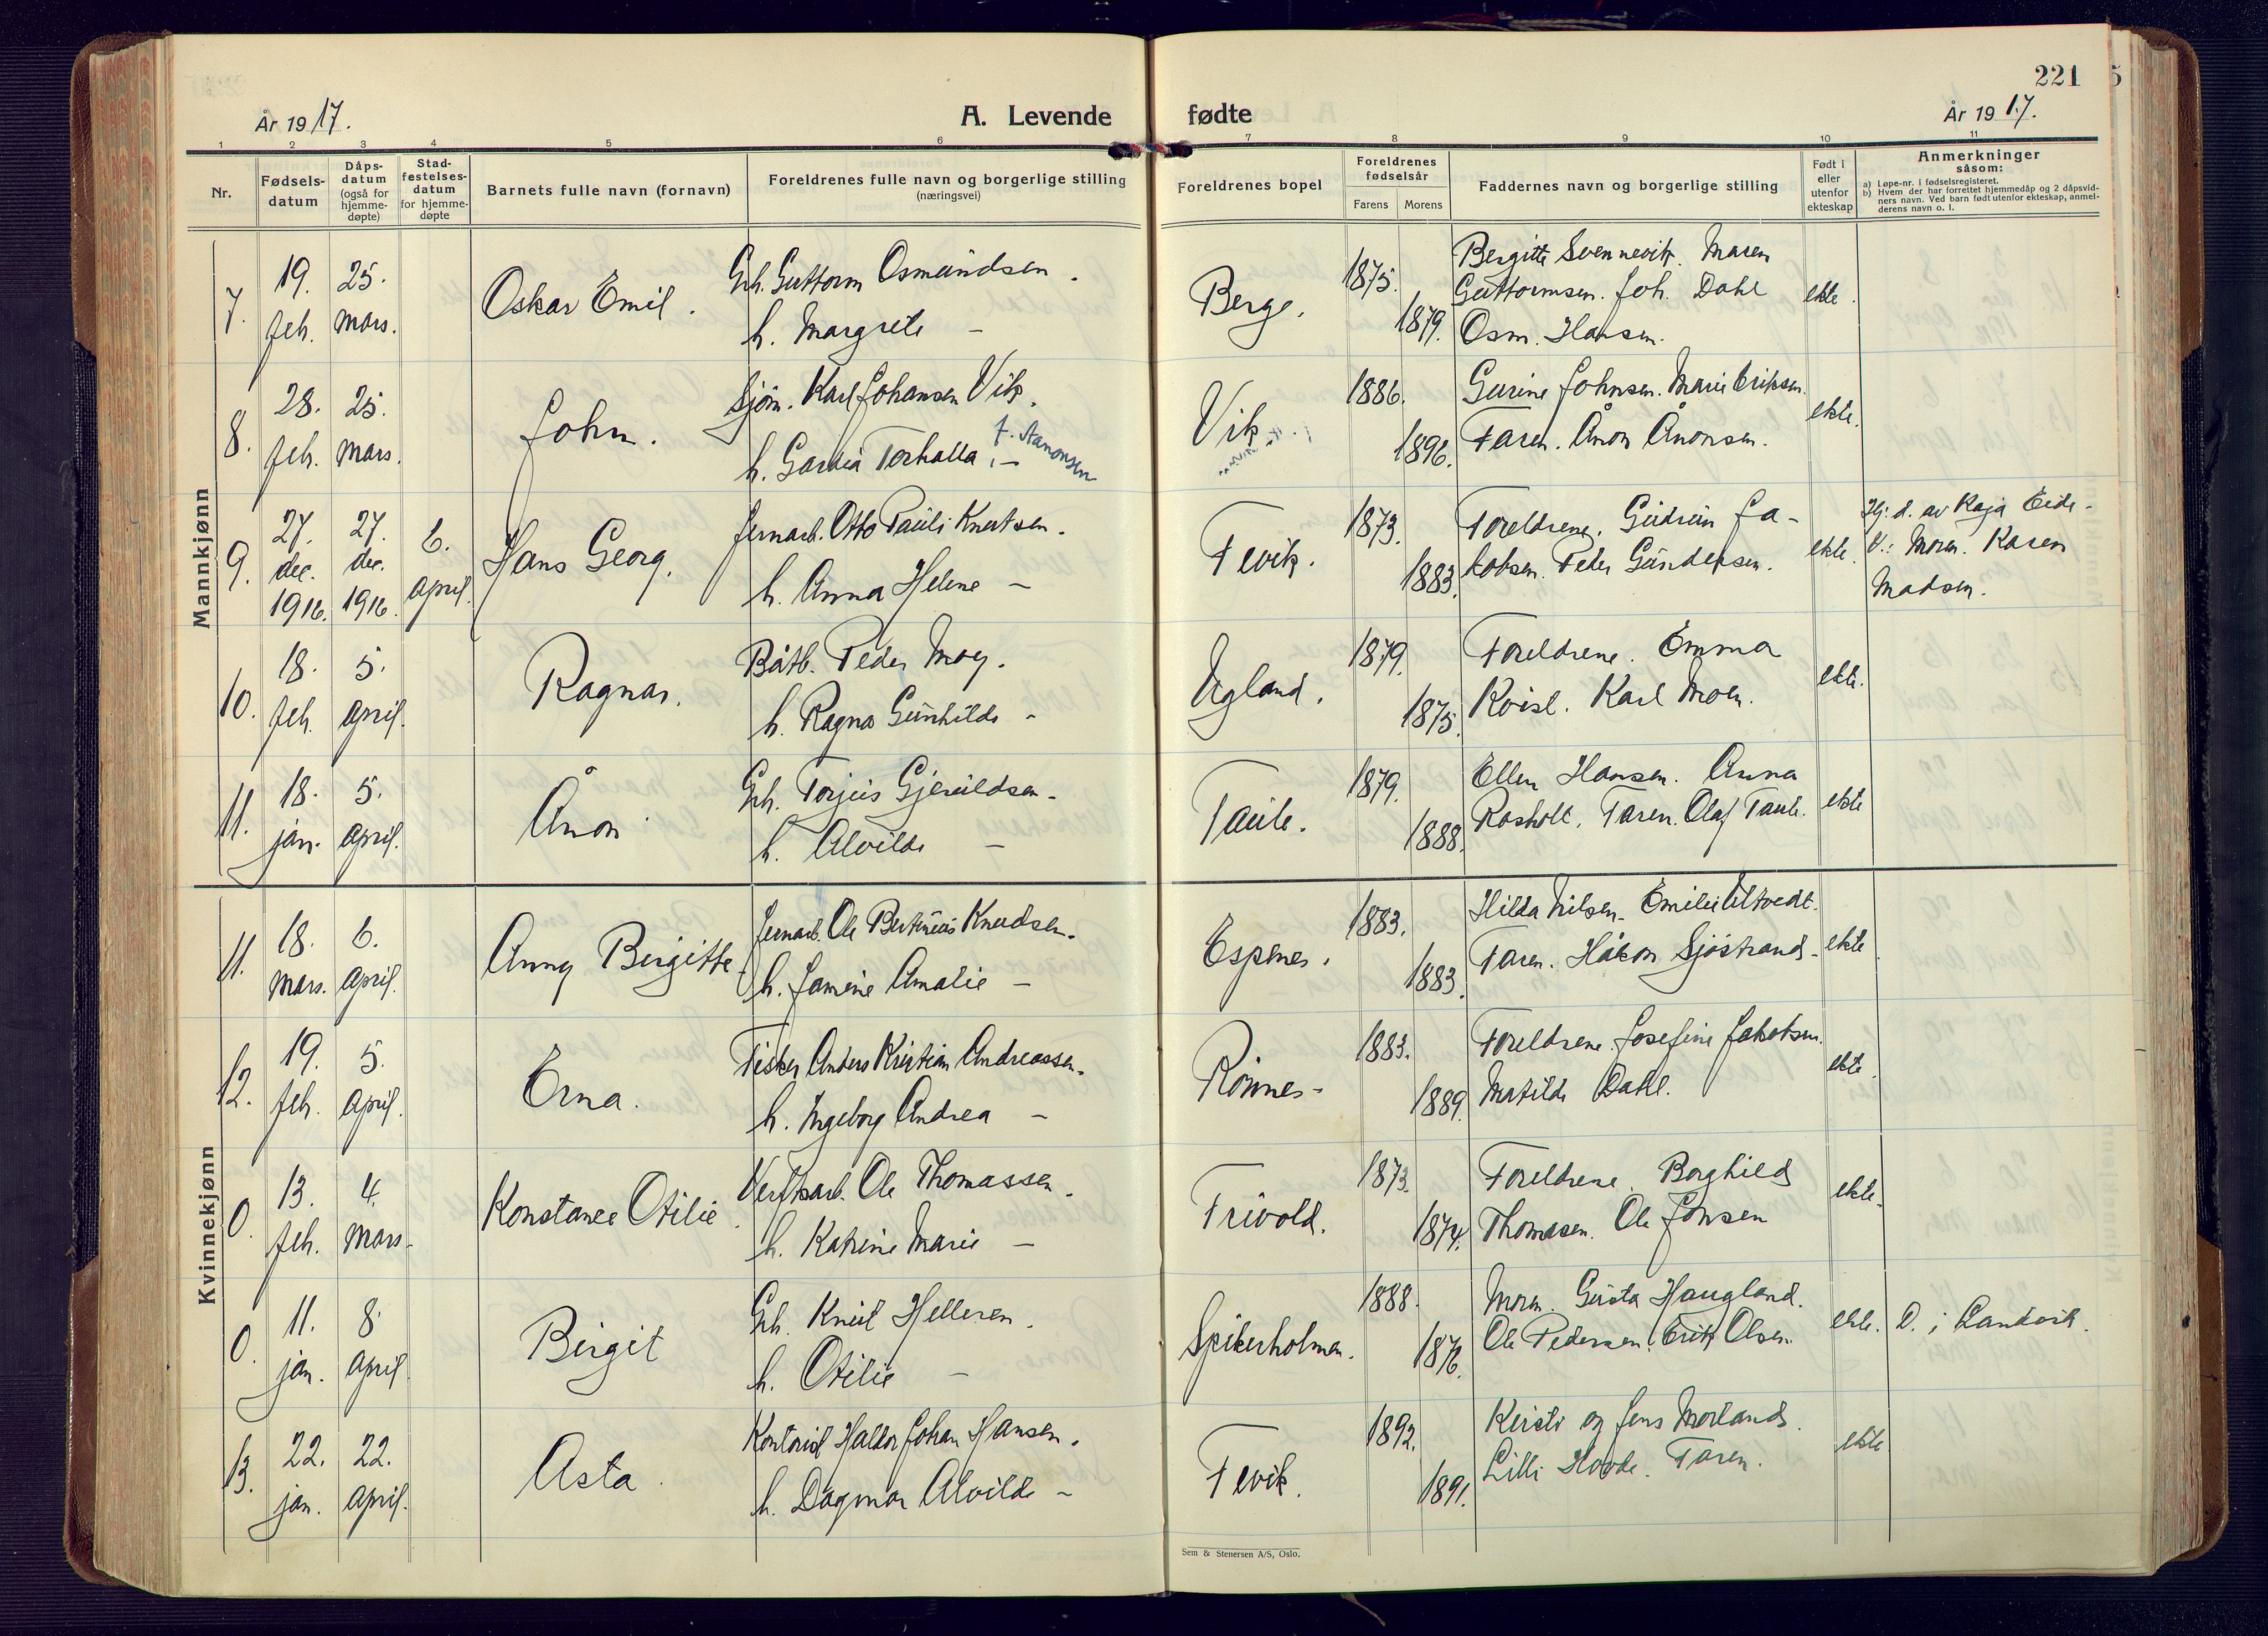 221
År 1917.
A. Levende fødte
År 1917.
1 2 3 4 5 6 7 8 9 10 11
Nr.
Fødsels-
datum
Dåps-
datum
(også for
hjemme-
døpte)
Stad-
festelses-
datum
for hjemme-
døpte
Barnets fulle navn (fornavn)
Foreldrenes fulle navn og borgerlige stilling
(næringsvei)
Foreldrenes bopel
Foreldrenes
fødselsår
Farens Morens
Faddernes navn og borgerlige stilling
Født i
eller
utenfor
ekteskap
Anmerkninger
såsom:
a) Løpe-nr. i fødselsregisteret.
b) Hvem der har forrettet hjemmedåp og 2 dåpsvid-
ners navn. Ved barn født utenfor ekteskap, anmel-
derens navn o. l.
Mannkjønn
7.
19.
feb.
25.
mars.
Oskar Emil.
Gh. Guttorm Osmundsen.
h. Margrete –
Berge.
1875.
1879.
Bergitte Svennevik. Maren
Guttormsen. Joh. Dahl
Osm. Hansen.
ekte.
8.
28.
feb.
25.
mars.
John.
Sjøm. Karl Johansen Vik.
h. Gardea Torhalla, –
f. Aanonsen
Vik.
1886.
1896.
Gurine Johnsen. Marie Eriksen.
Faren. Ånon Ånonsen.
ekte.
9.
27.
dec.
1916.
27.
dec.
1916.
6.
april.
Hans Georg.
Jernarb. Otto Pauli Knutsen.
h. Anna Helene –
Fevik.
1873.
1883.
Foreldrene. Gudrun Ja-
kobsen. Peder Gundersen.
ekte.
Hj: d. av Kaja Eide.
V.: Moren. Karen
Madsen.
10.
18.
feb.
5.
april.
Ragnar.
Båtb. Peder Moy.
h. Ragna Gunhilde –
Ugland.
1879.
1875.
Foreldrene. Emma
Kvist. Karl Moen.
ekte.
11.
18.
jan.
5.
april.
Ånon
Gh. Torjus Gjeruldsen.
h. Alvilde –
Taule.
1879.
1888.
Ellen Hansen. Anna
Rosholt. Faren. Olaf Taule.
ekte
Kvinnekjønn
11.
18.
mars.
6.
april.
Anny Birgitte
Jernarb. Ole Bertinius Knudsen.
h. Jamine Amalie –
Espenes.
1883.
1883.
Hilda Nilsen. Emilie Ultvedt.
Faren. Håkon Sjöstrand.
ekte
12.
19.
feb.
5.
april.
Erna.
Fisker Anders Kristian Andreassen.
h. Ingeborg Andrea –
Rönnes.
1883.
1889.
Foreldrene. Josefine Jakobsen.
Matilde Dahl.
ekte.
0.
13.
feb.
4.
mars.
Konstance Otilie.
Verftsarb. Ole Thomassen.
h. Katrine Marie –
Frivold.
1873.
1874.
Foreldrene. Borghild
Thomasen. Ole Jonsen
ekte.
0.
11.
jan.
8.
april
Birgit
Gh. Knut Helleren.
h. Otilie –
Spikerholmen.
1888.
1876.
Moren. Gusta Haugland.
Ole Pedersen. Erik Olsen.
ekte.
D. i Landvik.
13.
22.
jan.
22.
april.
Asta.
Kontorist Haldor Johan Hansen.
h. Dagmar Alvilde –
Fevik.
1892.
1891.
Kirsti og Jens Morland.
Lilli Hovde. Faren.
ekte
Sem & Stenersen A/S, Oslo.